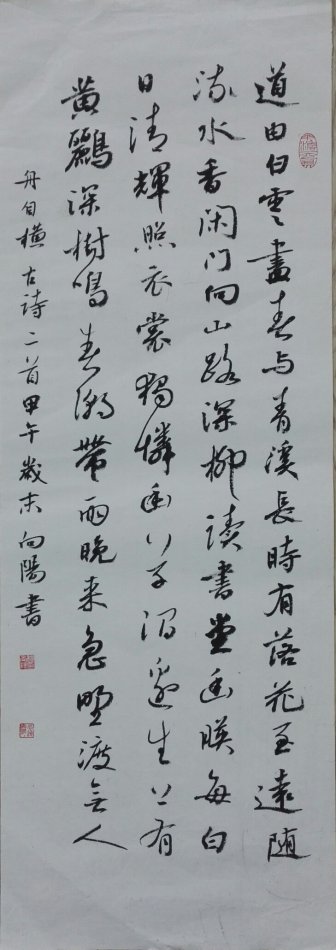 道由白雲盡春与青溪長時有落花至遠随
流水香閑门向山路深柳读書堂幽映每白
日清輝照衣裳獨憐幽草涧邊生上有
黄鸝深樹鳴春潮帶雨晚来急野渡无人
舟自横 古诗二首甲午歲末向陽書